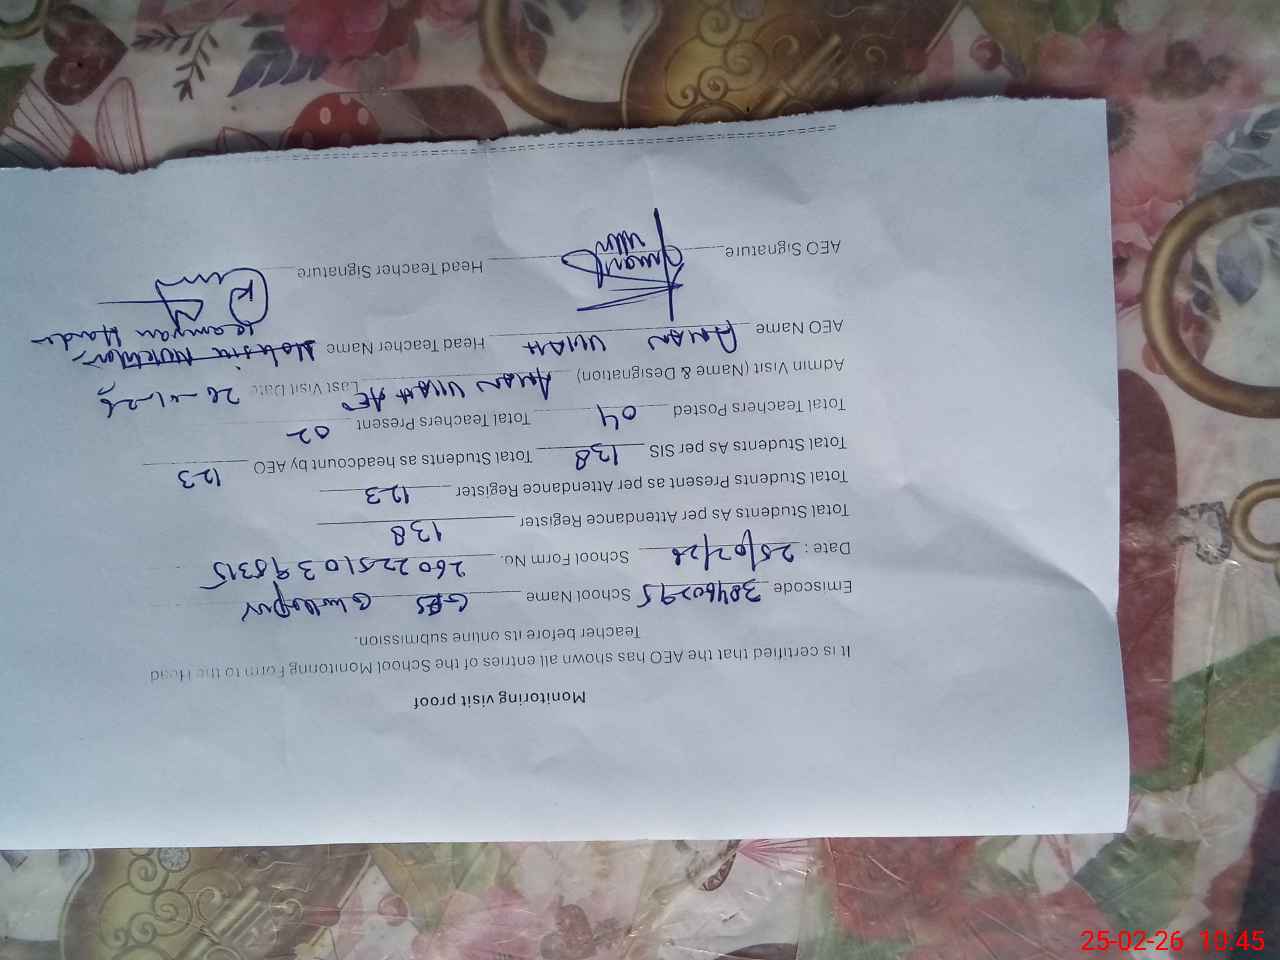 Monitoring visit proof
It is certified that the AEO has shown all entries of the School Monitoring Form to the Head
Teacher before its online submission.
Emiscode 38460295 School Name GPS
Date : 25/02/26 School Form No. 26022510398315
Total Students As per Attendance Register 138
Total Students Present as per Attendance Register 123
Total Students As per SIS 138 Total Students as headcount by AEO 123
Total Teachers Posted 04 Total Teachers Present 02
Admin Visit (Name & Designation) AMAN ULLAH AEO Last Visit Date
AEO Name AMAN ULLAH Head Teacher Name
AEO Signature Head Teacher Signature
25-02-26 10:45